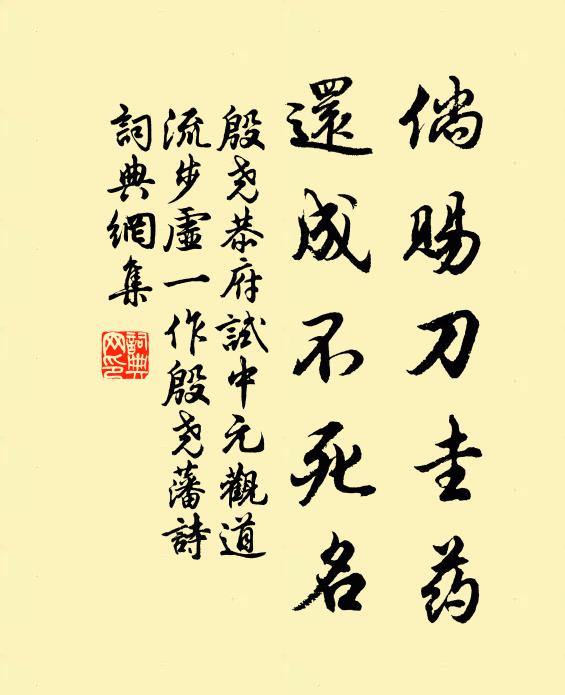 倘賜刀圭药
還成不死名
殷尧恭府試中元觀道
流步虛一作殷尧藩詩
詞典網集
詞典
网印